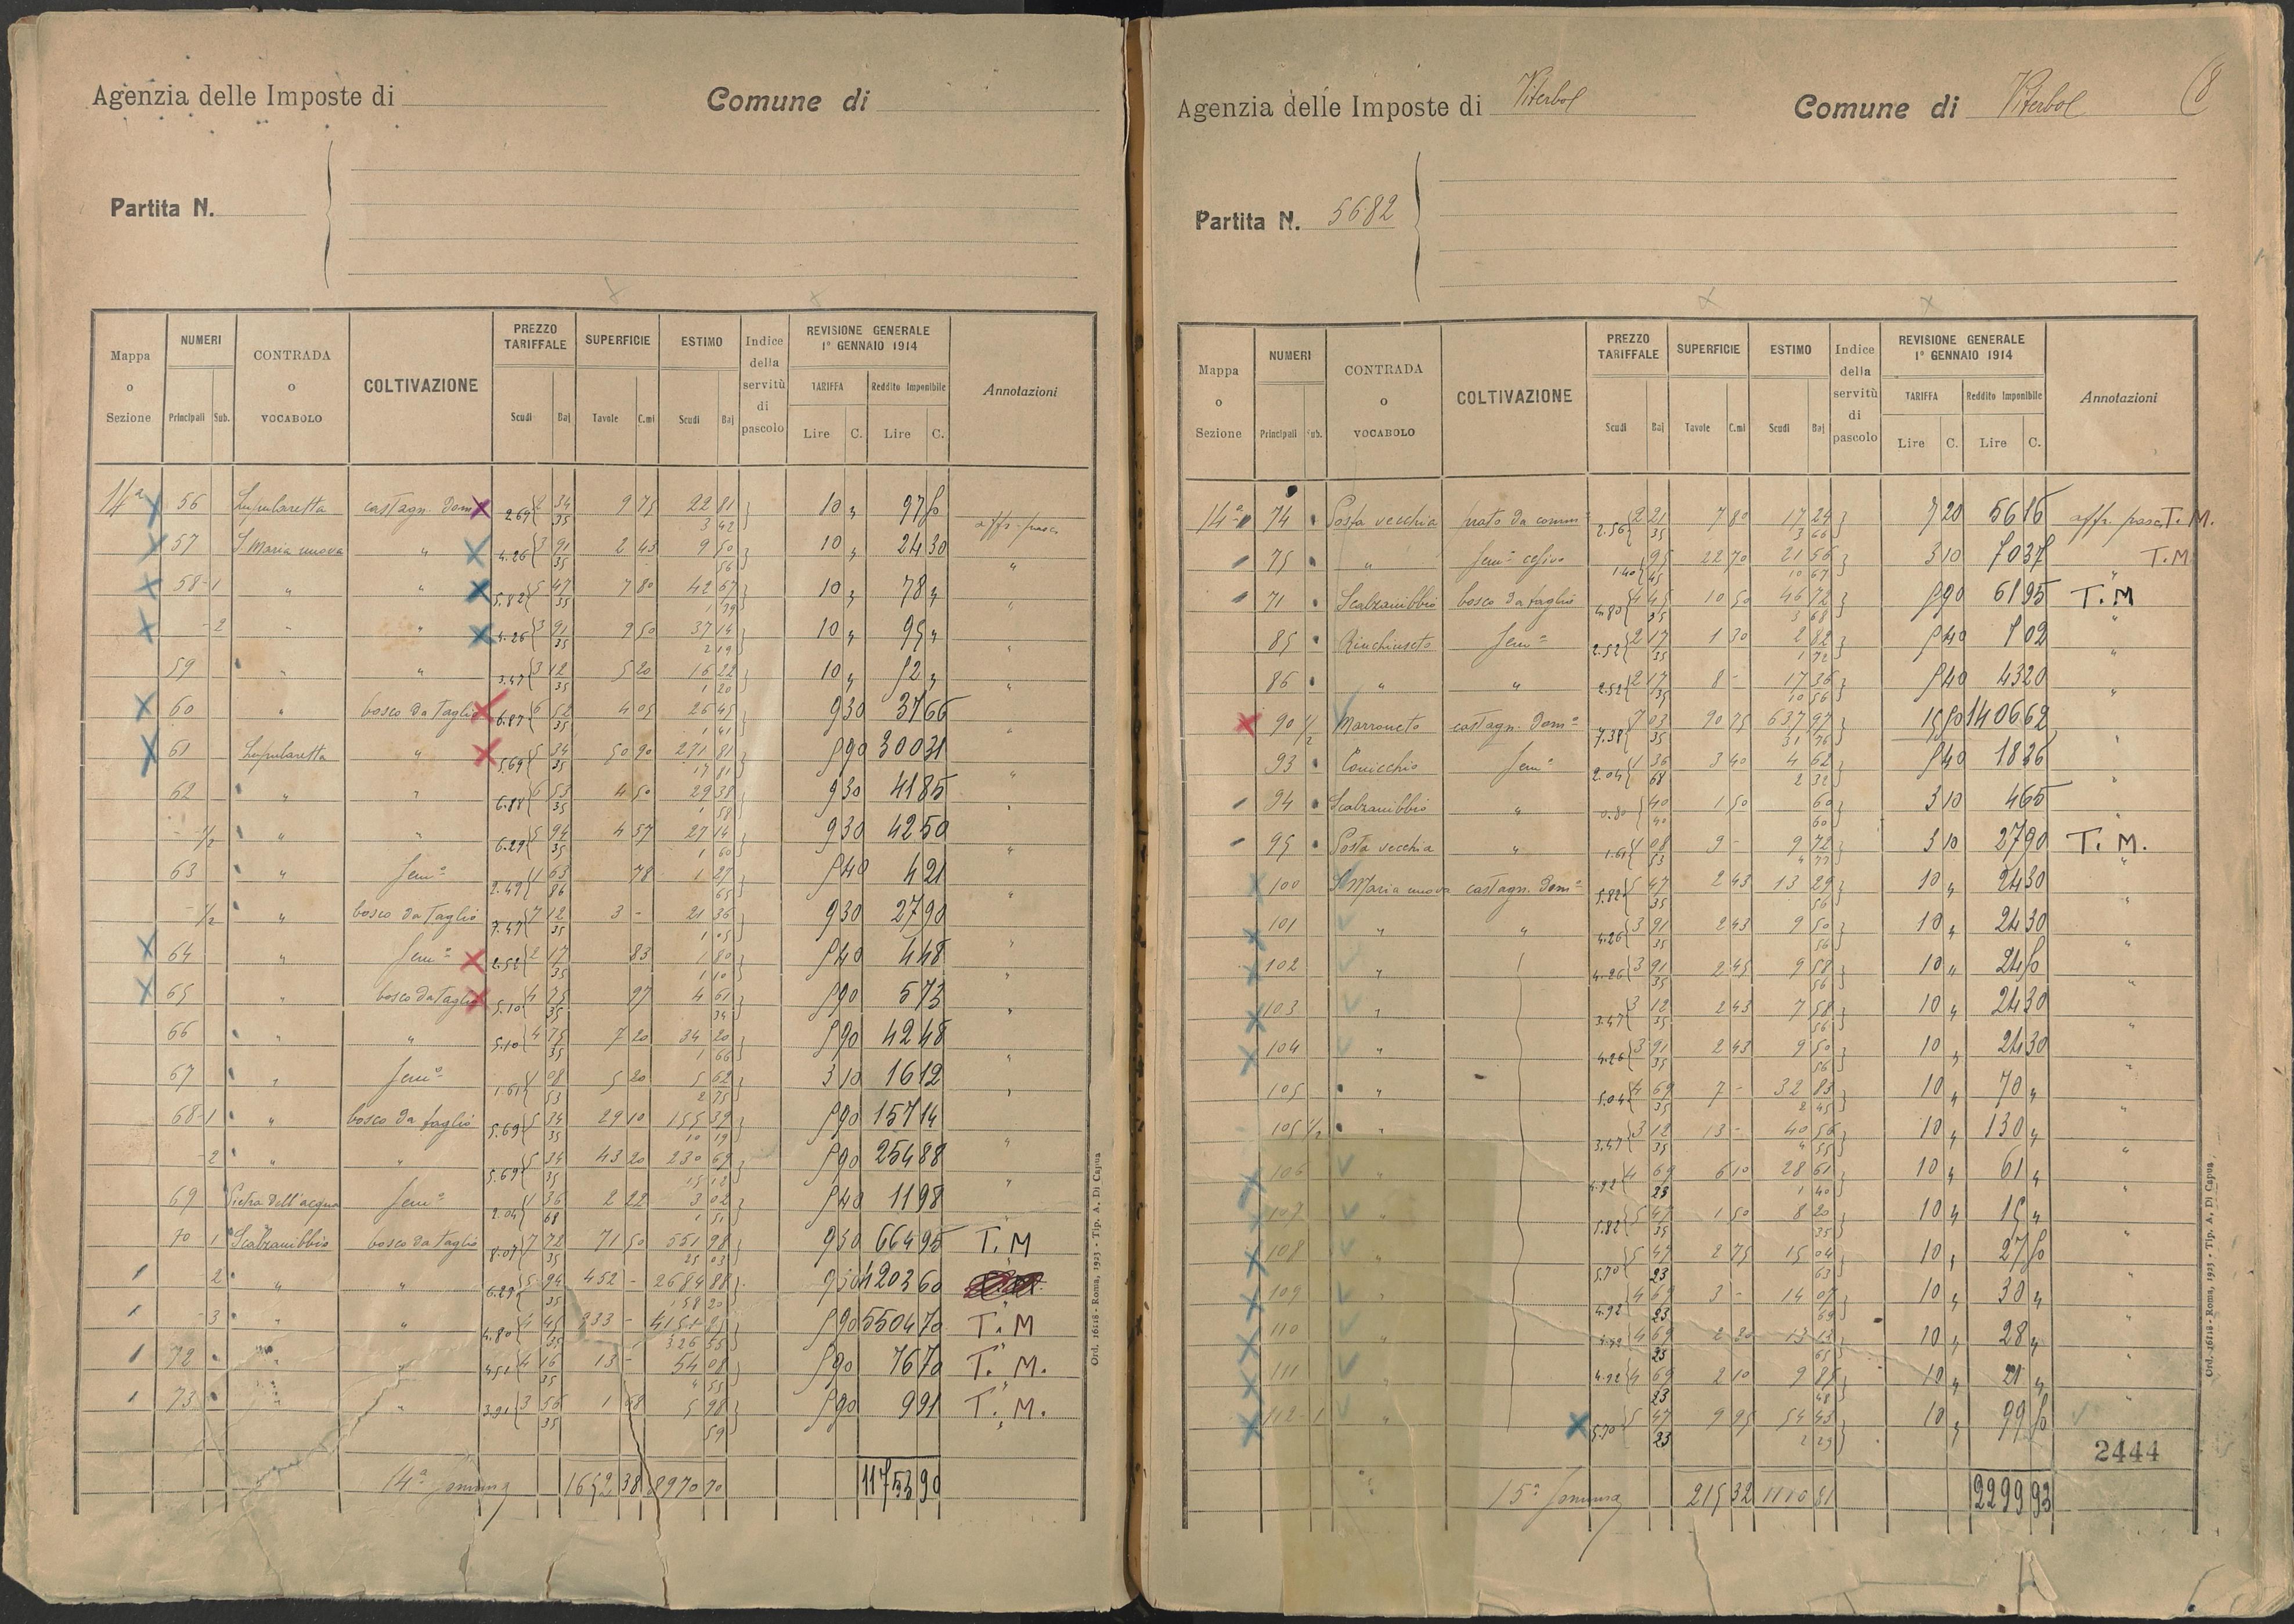 Agenzia delle Imposte di
Comune di
Partita N.
Mappa o Sezione | NUMERI Principali Sub. | CONTRADA o VOCABOLO | COLTIVAZIONE | PREZZO TARIFFALE Scudi Baj | SUPERFICIE Tavole C.mi | ESTIMO Scudi Baj | Indice della servitù di pascolo | REVISIONE GENERALE 1º GENNAIO 1914 TARIFFA Lire C. Reddito Imponibile Lire C. | Annotazioni
56 castagn. Dom 2.69 { 2 34 35 9 75 22 81 3 42 10 "
57 S Maria nuova " 4.26 { 3 91 35 2 43 9 50 56 10 " 24 30 "
58-1 " " 5.82 { 5 47 35 7 80 42 67 10 " 78 " "
-2 " " 4.26 { 3 91 35 9 50 37 14 2 19 10 " 95 " "
59 " " 3.47 { 3 12 35 5 20 16 22 1 20 10 " 52 " "
60 " bosco da Taglio 6.87 { 6 52 35 4 05 26 45 1 41 9 30 37 66 "
61 " 5.69 { 5 34 35 50 90 271 81 17 81 5 90 300 31 "
62 " " 6.88 { 6 53 35 4 50 29 38 1 58 9 30 41 85 "
1/2 " " 6.29 { 5 94 35 4 57 27 14 1 60 9 30 42 50 "
63 " Sem.º 2.49 { 1 63 86 78 1 27 65 5 40 4 21 "
1/2 " bosco da Taglio 7.47 { 7 12 35 3 - 21 36 1 05 9 30 27 90 "
64 " Sem.º 2.52 { 2 17 35 83 1 80 1 10 5 40 4 48 "
65 " bosco da Taglio 5.10 { 4 75 35 97 4 61 34 5 90 5 73 "
66 " " 5.10 { 4 75 35 7 20 34 20 1 66 5 90 42 48 "
67 " Sem.º 1.61 { 1 08 53 5 20 5 62 2 75 3 10 16 12 "
68-1 " bosco da taglio 5.69 { 5 34 35 29 10 155 39 10 19 5 90 157 14
-2 " " 5.69 { 5 34 35 43 20 230 69 15 12 5 90 254 88 "
69 Pietra dell'acqua Sem.º 2.04 { 1 36 68 2 22 3 02 1 51 5 40 11 98 "
70 1 Scalzanibbio bosco da Taglio 8.07 { 7 72 35 71 50 551 98 25 03 9 30 664 95 T. M
2 " " 6.29 { 5 94 35 452 - 2684 88 158 20 9 30 4203 60
-3 " " 4.80 { 4 45 35 933 - 5 90 5504 70 T. M
72 " " 4.51 { 4 16 35 13 - 54 08 4 55 5 90 76 70 T. M.
73 " " 3.91 { 3 56 35 1 68 5 98 59 5 90 9 91 T. M.
14ª Somma 1652 38 8970 70 11753 90
Ord. 16118 - Roma, 1923 - Tip. A. Di Capua
Agenzia delle Imposte di Viterbo
Comune di Viterbo
8
Partita N. 5682
Mappa o Sezione | NUMERI Principali Sub. | CONTRADA o VOCABOLO | COLTIVAZIONE | PREZZO TARIFFALE Scudi Baj | SUPERFICIE Tavole C.mi | ESTIMO Scudi Baj | Indice della servitù di pascolo | REVISIONE GENERALE 1º GENNAIO 1914 TARIFFA Lire C. Reddito Imponibile Lire C. | Annotazioni
14ª 74 Posta vecchia 2.56 { 2 21 35 7 80 17 24 3 66 7 20 56 16 affr. pasc. T. M.
75 " 1.40 { 95 45 22 70 21 56 10 67 3 10 70 37 " T. M
71 Scalzanibbio bosco da taglio 4.80 { 4 45 35 10 50 46 72 3 68 5 90 61 95 T. M
85 Sem.º 2.52 { 2 17 35 1 30 2 82 1 72 5 40 7 02 "
86 " " 2.52 { 2 17 35 8 - 17 36 10 56 5 40 43 20 "
90 1/2 Marroneto castagn. Dom.º 7.38 { 7 03 35 90 75 637 97 31 76 15 50 1406 62 "
93 Sem.º 2.04 { 1 36 68 3 40 4 62 2 32 5 40 18 36 "
94 Scalzanibbio " 0.80 { 40 40 1 50 60 60 3 10 4 65 "
95 Posta vecchia " 1.61 { 1 08 53 9 - 9 72 4 77 3 10 27 90 T. M.
100 S Maria nuova castagn. Dom.º 5.82 { 5 47 35 2 43 13 29 56 10 " 24 30 "
101 " " 4.26 { 3 91 35 2 43 9 50 56 10 " 24 30 "
102 " 4.26 { 3 91 35 2 45 9 58 56 10 " 24 50 "
103 " 3.47 { 3 12 35 2 43 7 58 56 10 " 24 30 "
104 " 4.26 { 3 91 35 2 43 9 50 56 10 " 24 30 "
105 " 5.04 { 4 69 35 7 - 32 83 2 45 10 " 70 " "
105 1/2 " 3.47 { 3 12 35 13 - 40 56 4 55 10 " 130 " "
106 " 4.92 { 4 69 23 6 10 28 61 1 40 10 " 61 " "
107 " 5.82 { 5 47 35 1 50 8 20 35 10 " 15 " "
108 " 5.70 { 5 47 23 2 75 15 04 63 10 " 27 50 "
109 " 4.92 { 4 69 23 3 - 14 07 69 10 " 30 " "
110 " 4.92 { 4 69 23 2 80 13 13 65 10 " 28 " "
111 " 4.92 { 4 69 23 2 10 9 85 48 10 " 21 " "
112-1 " 5.70 { 5 47 23 9 95 54 43 2 29 10 " 99 50
2444
15ª Somma 215 32 1110 81 2299 93
Ord. 16118 - Roma, 1923 - Tip. A. Di Capua